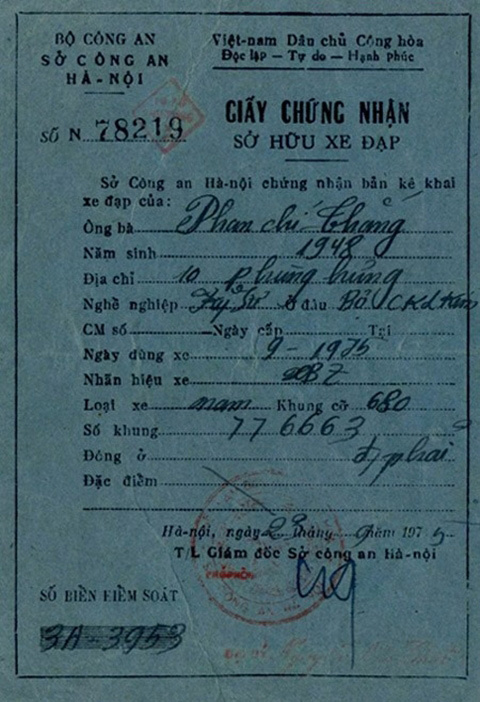 BỘ CÔNG AN
SỞ CÔNG AN
HÀ-NỘI
Việt-nam Dân chủ Cộng hòa
Độc lập — Tự do — Hạnh phúc
SỐ N 78219
GIẤY CHỨNG NHẬN
SỞ HỮU XE ĐẠP
Sở Công an Hà-nội chứng nhận bản kê khai
xe đạp của:
Ông bà Phan chí Thắng
Năm sinh 1948
Địa chỉ 10 Phùng hưng
Nghề nghiệp Kỹ Sư Ở đâu Bộ CK Lkim
CM số Ngày cấp Tại
Ngày dùng xe 9-1975
Nhãn hiệu xe
Loại xe nam Khung cỡ 680
Số khung 776663
Đóng ở đ phải
Đặc điểm
Hà-nội, ngày 23 tháng 9 năm 1975
T L Giám đốc Sở công an Hà-nội
SỐ BIỂN KIỂM SOÁT
3A-3953